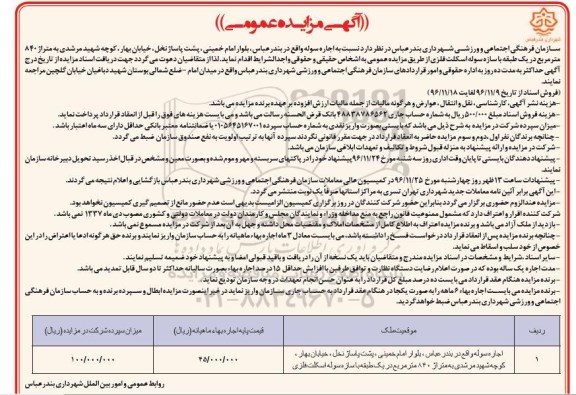 ((آگهی مزایده عمومی))
سازمان فرهنگی اجتماعی و ورزشی شهرداری بندرعباس در نظر دارد نسبت به اجاره سوله واقع در بندرعباس، بلوار امام خمینی، پشت پاساژ نخل، خیابان بهار، کوچه شهید مرشدی به متراژ ۸۴۰
متر مربع در یک طبقه با سازه سوله اسکلت فلزی از طریق مزایده عمومی به اشخاص حقیقی و حقوقی واجد الشرایط اقدام نماید. لذا از متقاضیان دعوت می گردد جهت دریافت اسناد مزایده از تاریخ درج
آگهی حداکثر به مدت ده روز به اداره حقوقی و امور قراردادهای سازمان فرهنگی اجتماعی و ورزشی شهرداری بندرعباس واقع در میدان امام - ضلع شمالی بوستان شهید دباغیان خیابان گلچین مراجعه
نمایند.
(فروش اسناد از تاریخ ۹۶/۱۱/۹ لغایت ۹۶/۱۱/۱۸)
-هزینه نشر آگهی، کارشناسی، نقل و انتقال، عوارض و هرگونه مالیات از جمله مالیات ارزش افزوده بر عهده برنده مزایده می باشد.
-هزینه فروش اسناد مبلغ ۵۰۰/۰۰۰ ریال به شماره حساب جاری بانک قرض الحسنه رسالت می باشد و می بایست هزینه های فوق را قبل از انعقاد قرارداد پرداخت نماید.
-میزان سپرده شرکت در مزایده به شرح ذیل می باشد که بایستی بصورت واریز نقدی به شماره حساب سپرده یا ضمانتنامه معتبر بانکی حداقل دارای سه ماه اعتبار باشد.
-چنانچه برندگان نفر اول، دوم و سوم مزایده حاضر به انعقاد قرارداد در جهت مقرر قانونی نگردند سپرده آنها به ترتیب اولویت به نفع صندوق سازمان ضبط می گردد.
-شرکت در مزایده و ارائه پیشنهاد به منزله قبول شروط و تکالیف و تعهدات ابلاغی سازمان می باشد.
-پیشنهاد دهندگان بایستی تا پایان وقت اداری روز سه شنبه مورخ ۹۶/۱۱/۲۴ پیشنهاد خود را در پاکتهای سربسته و مهر و موم شده و بصورت معین و مشخص در قبال اخذ رسید تحویل دبیرخانه سازمان
نمایند.
-پیشنهادات ساعت ۱۳ ظهر روز چهارشنبه مورخ ۹۶/۱۱/۲۵ در کمیسیون عالی معاملات سازمان فرهنگی اجتماعی ورزشی شهرداری بندرعباس بازگشایی و اعلام نتیجه می گردند.
-این آگهی برابر آئین نامه معاملات جدید شهرداری تهران تسری به مراکز استانها صرفا یک نوبت منتشر می گردد.
-مزایده عندالزوم حضوری برگزار می گردد بنابراین حضور شرکت کنندگان در روز برگزاری کمیسیون الزامیست بدیهی است عدم حضور مانع از تصمیم گیری کمیسیون نخواهد بود.
شرکت کننده اقرار و اعتراف دارد که مشمول ممنوعیت قانون راجع به منع مداخله وزراء و نمایندگان مجلس و کارمندان دولت در معاملات دولتی و کشوری مصوب دی ماه ۱۳۳۷ نمی باشد.
-بازدید از ملک آزاد می باشد و برنده مزایده اعتراف به اطلاع کامل از مشخصات املاک و مقتضیات محل داشته و جهل به آن بعد از شرکت در مزایده مسموع نمی باشد.
-چنانچه برنده مزایده پس از انعقاد قرارداد درخواست فسخ را داشته باشد، می بایست معادل ۳ ماه اجاره بهاء ماهیانه را به حساب سازمان واریز نمایند و برنده حق هرگونه ادعا یا اعتراض را در این
خصوص از خود سلب و اسقاط می نماید.
-سایر اسناد، شرایط و مشخصات در اسناد مزایده مندرج و متقاضیان باید یک نسخه از آن را دریافت و با قید قبولی امضا و به پیشنهاد خود ضمیمه تسلیم نمایند.
-مدت اجاره یک ساله بوده که در صورت اعلام رضایت دستگاه نظارت و توافق طرفین با افزایش حداقل ۱۵ درصد اجاره بهاء بصورت سالیانه حداکثر تا دو سال قابل تمدید می باشد.
-برنده مزایده هنگام عقد قرارداد می بایست ده درصد مبلغ کل قرارداد را به عنوان حسن انجام تعهدات در وجه سازمان تودیع نماید.
-برنده مزایده می بایست اجاره بهاء ۶ ماهه را به صورت یکجا در هنگام عقد قرارداد به حساب جاری سازمان واریز نماید در غیر اینصورت مزایده ابطال و سپرده برنده و به حساب سازمان فرهنگی
اجتماعی و ورزشی شهرداری بندرعباس ضبط خواهد گردید.
ردیف موقعیت ملک قیمت پایه اجاره بهاء ماهیانه (ریال) میزان سپرده شرکت در مزایده (ریال)
۱ اجاره سوله واقع در بندرعباس، بلوار امام خمینی، پشت پاساژ نخل، خیابان بهار، ۲۵/۰۰۰/۰۰۰ ۱۰۰/۰۰۰/۰۰۰
کوچه شهید مرشدی به متراژ ۸۴۰ متر مربع در یک طبقه با سازه سوله اسکلت فلزی
روابط عمومی و امور بین الملل شهرداری بندرعباس